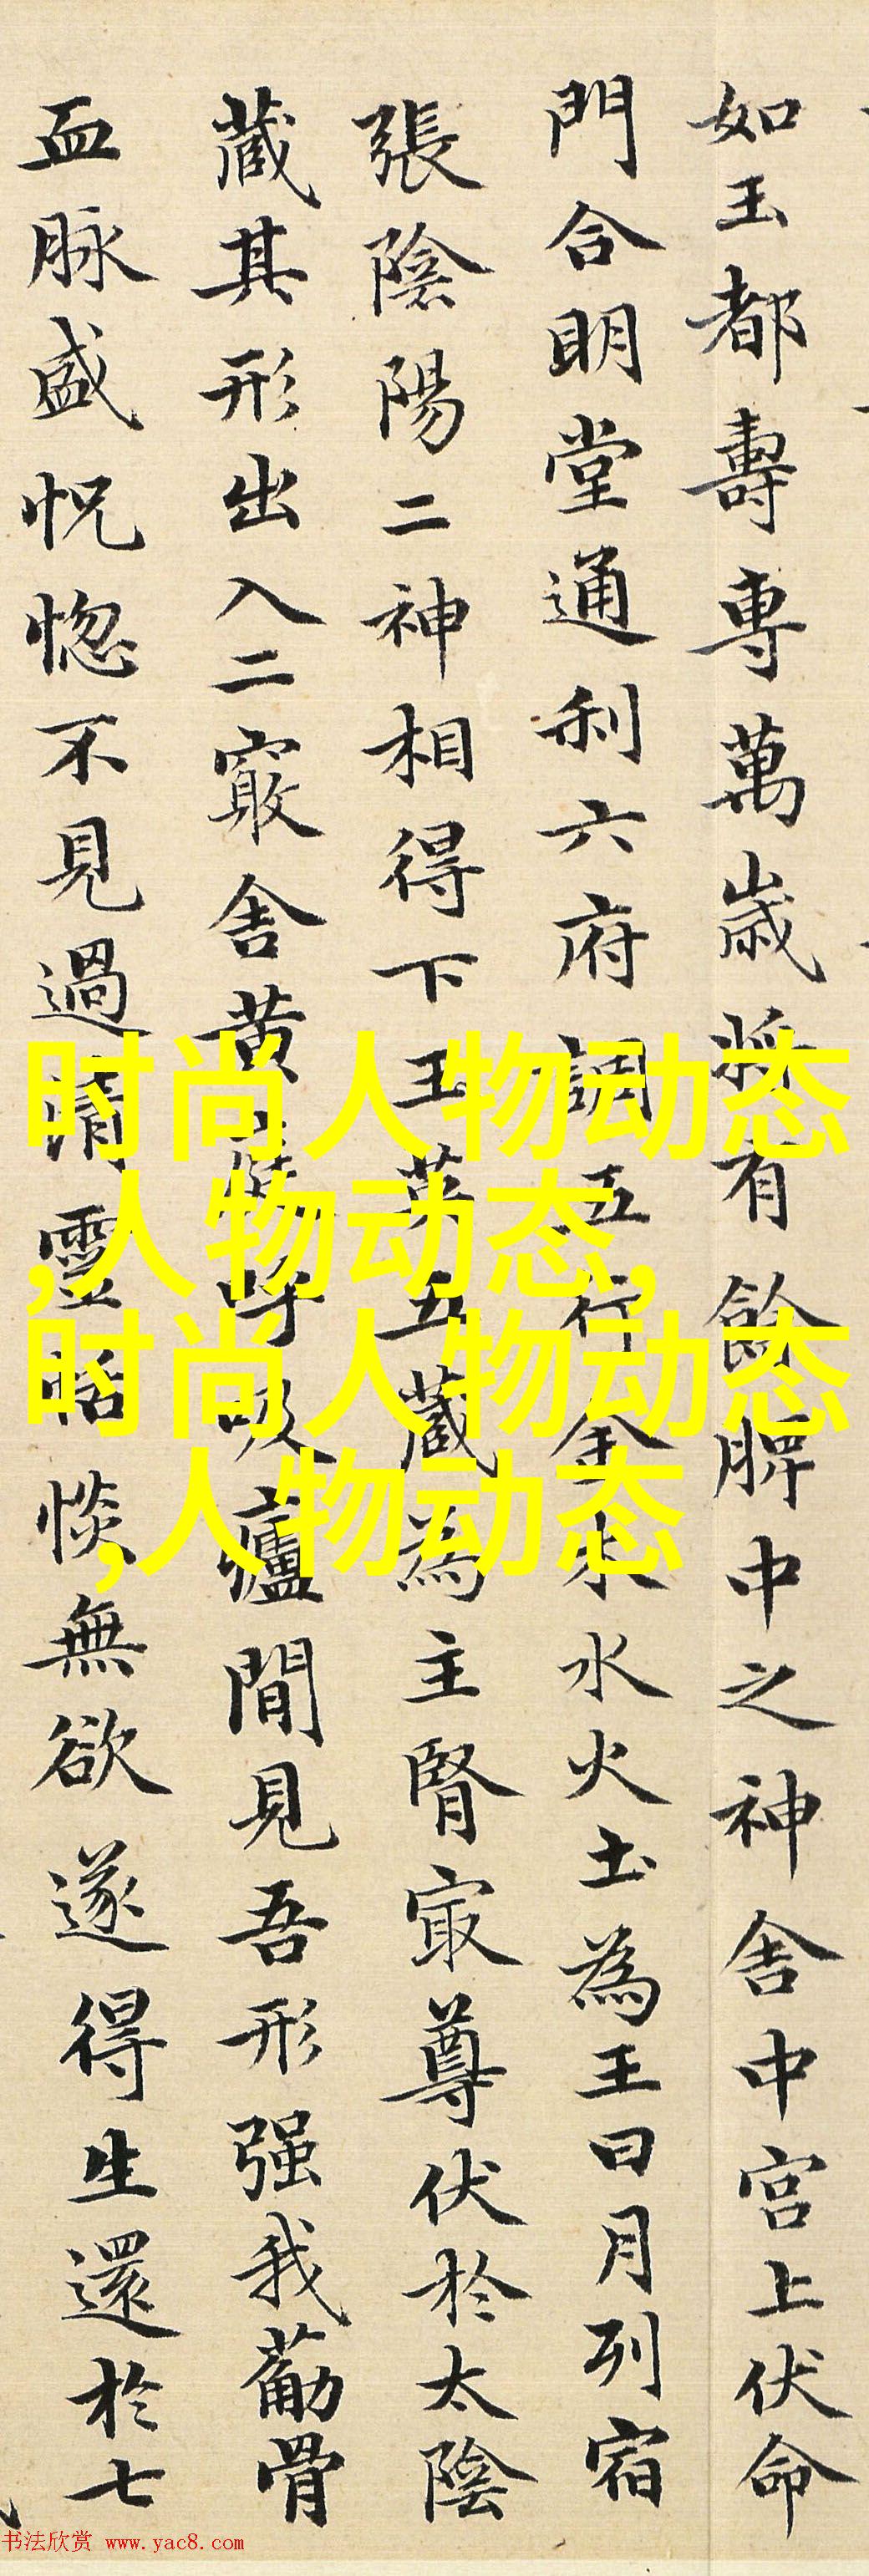 如玉都壽專萬歲將有餘脾中之神舍中宮上伏命
門合明堂通利六府調五行金木水火土為王日月列宿
張陰陽二神相得下玉英五藏為主腎冣尊伏於太陰
藏其形出入二竅舍黄庭呼吸廬間見吾形强我葡骨
血脉盛怳惚不見過清靈恬惔無欲遂得生還於七
时尚人物动态
,人物动态,
时尚人物动态
,人物动态
书法欣赏 www.yac8.com